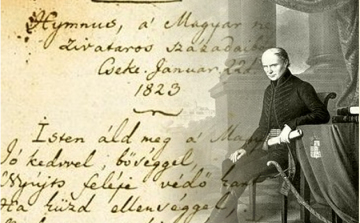 Hymnus, a' Magyar ne
zivataros századaibó
Cseke Januar. 22d.
1823
Isten áld meg a' Magy
Jó kedvvel, bőséggel,
Nyújts feléje védő kart
Ha küzd ellenséggel